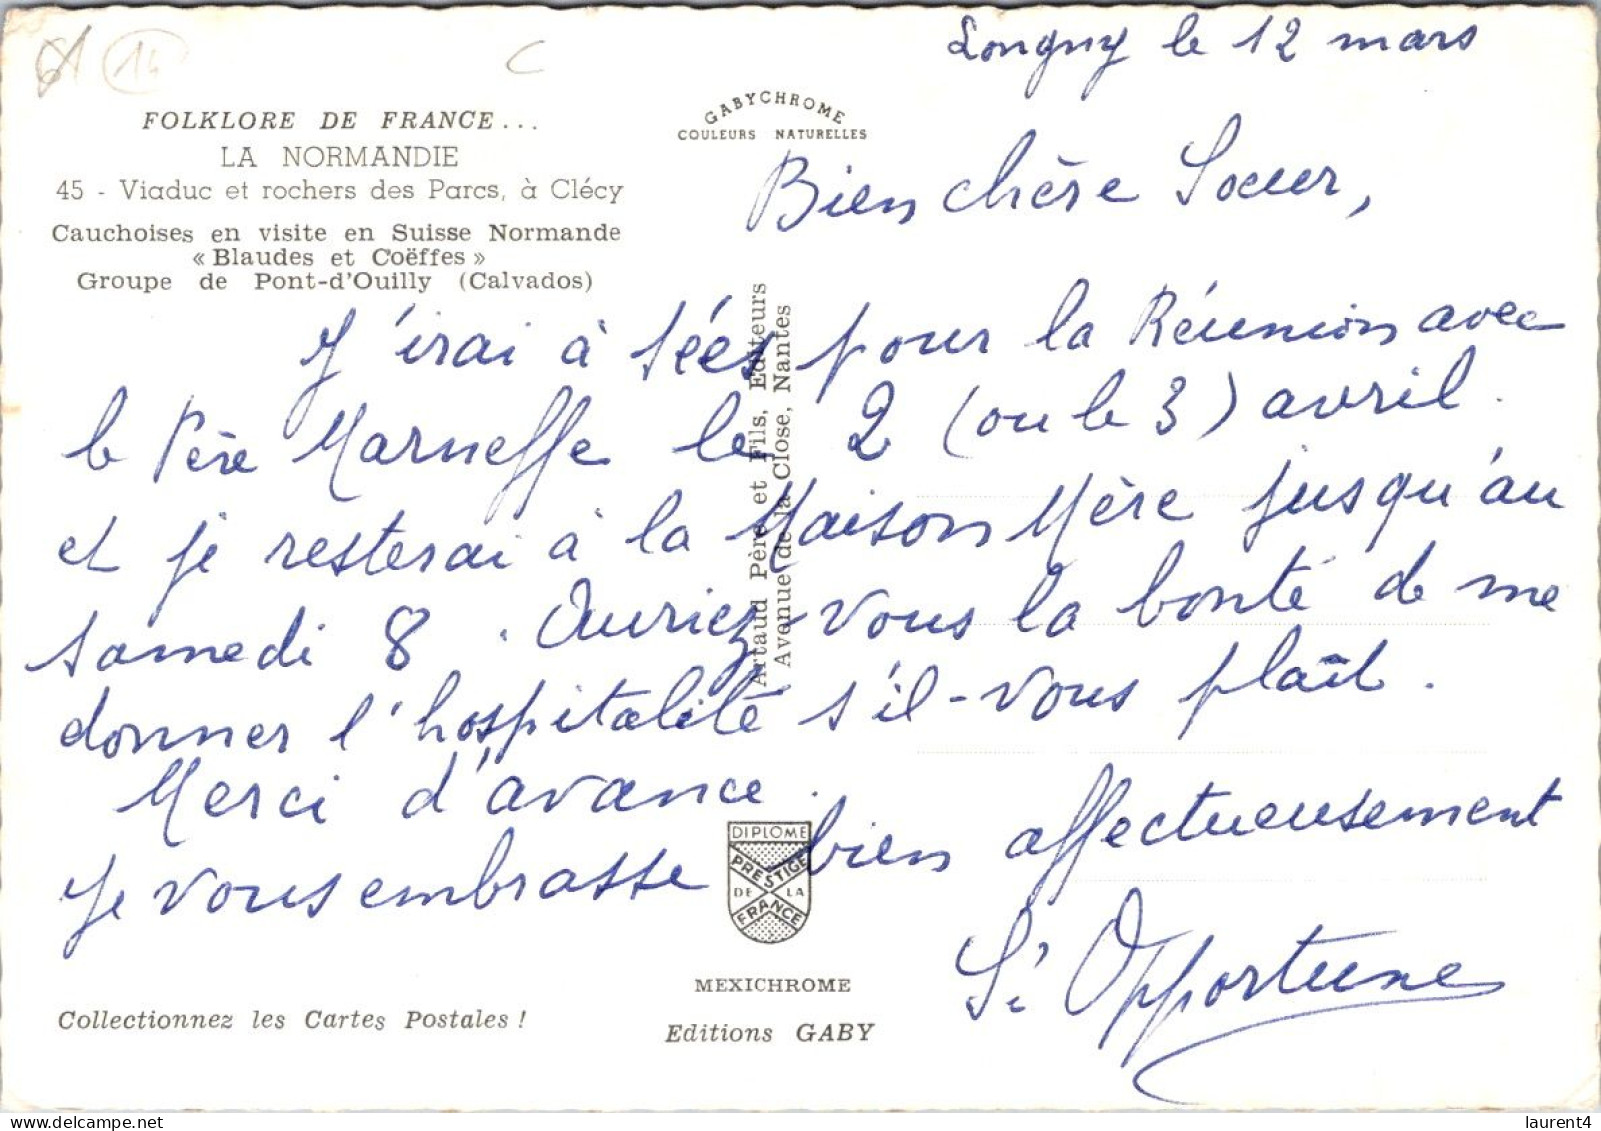 14
C
FOLKLORE DE FRANCE...
LA NORMANDIE
45 - Viaduc et rochers des Parcs, à Clécy
Cauchoises en visite en Suisse Normande
« Blaudes et Coëffes »
Groupe de Pont-d'Ouilly (Calvados)
GABYCHROME
COULEURS NATURELLES
Artaud Père et Fils, Editeurs
Avenue de la Close, Nantes
Longny le 12 mars
Bien chère Soeur,
J'irai à Sées pour la Réunion avec
le Père Marneffe le 2 (ou le 3) avril.
et je resterai à la Maison Mère jusqu'au
samedi 8. Auriez-vous la bonté de me
donner l'hospitalité s'il-vous plaît.
Merci d'avance.
Je vous embrasse bien affectueusement
Sr Opportune
DIPLOME
PRESTIGE
DE LA
FRANCE
MEXICHROME
Editions GABY
Collectionnez les Cartes Postales !
laurent4